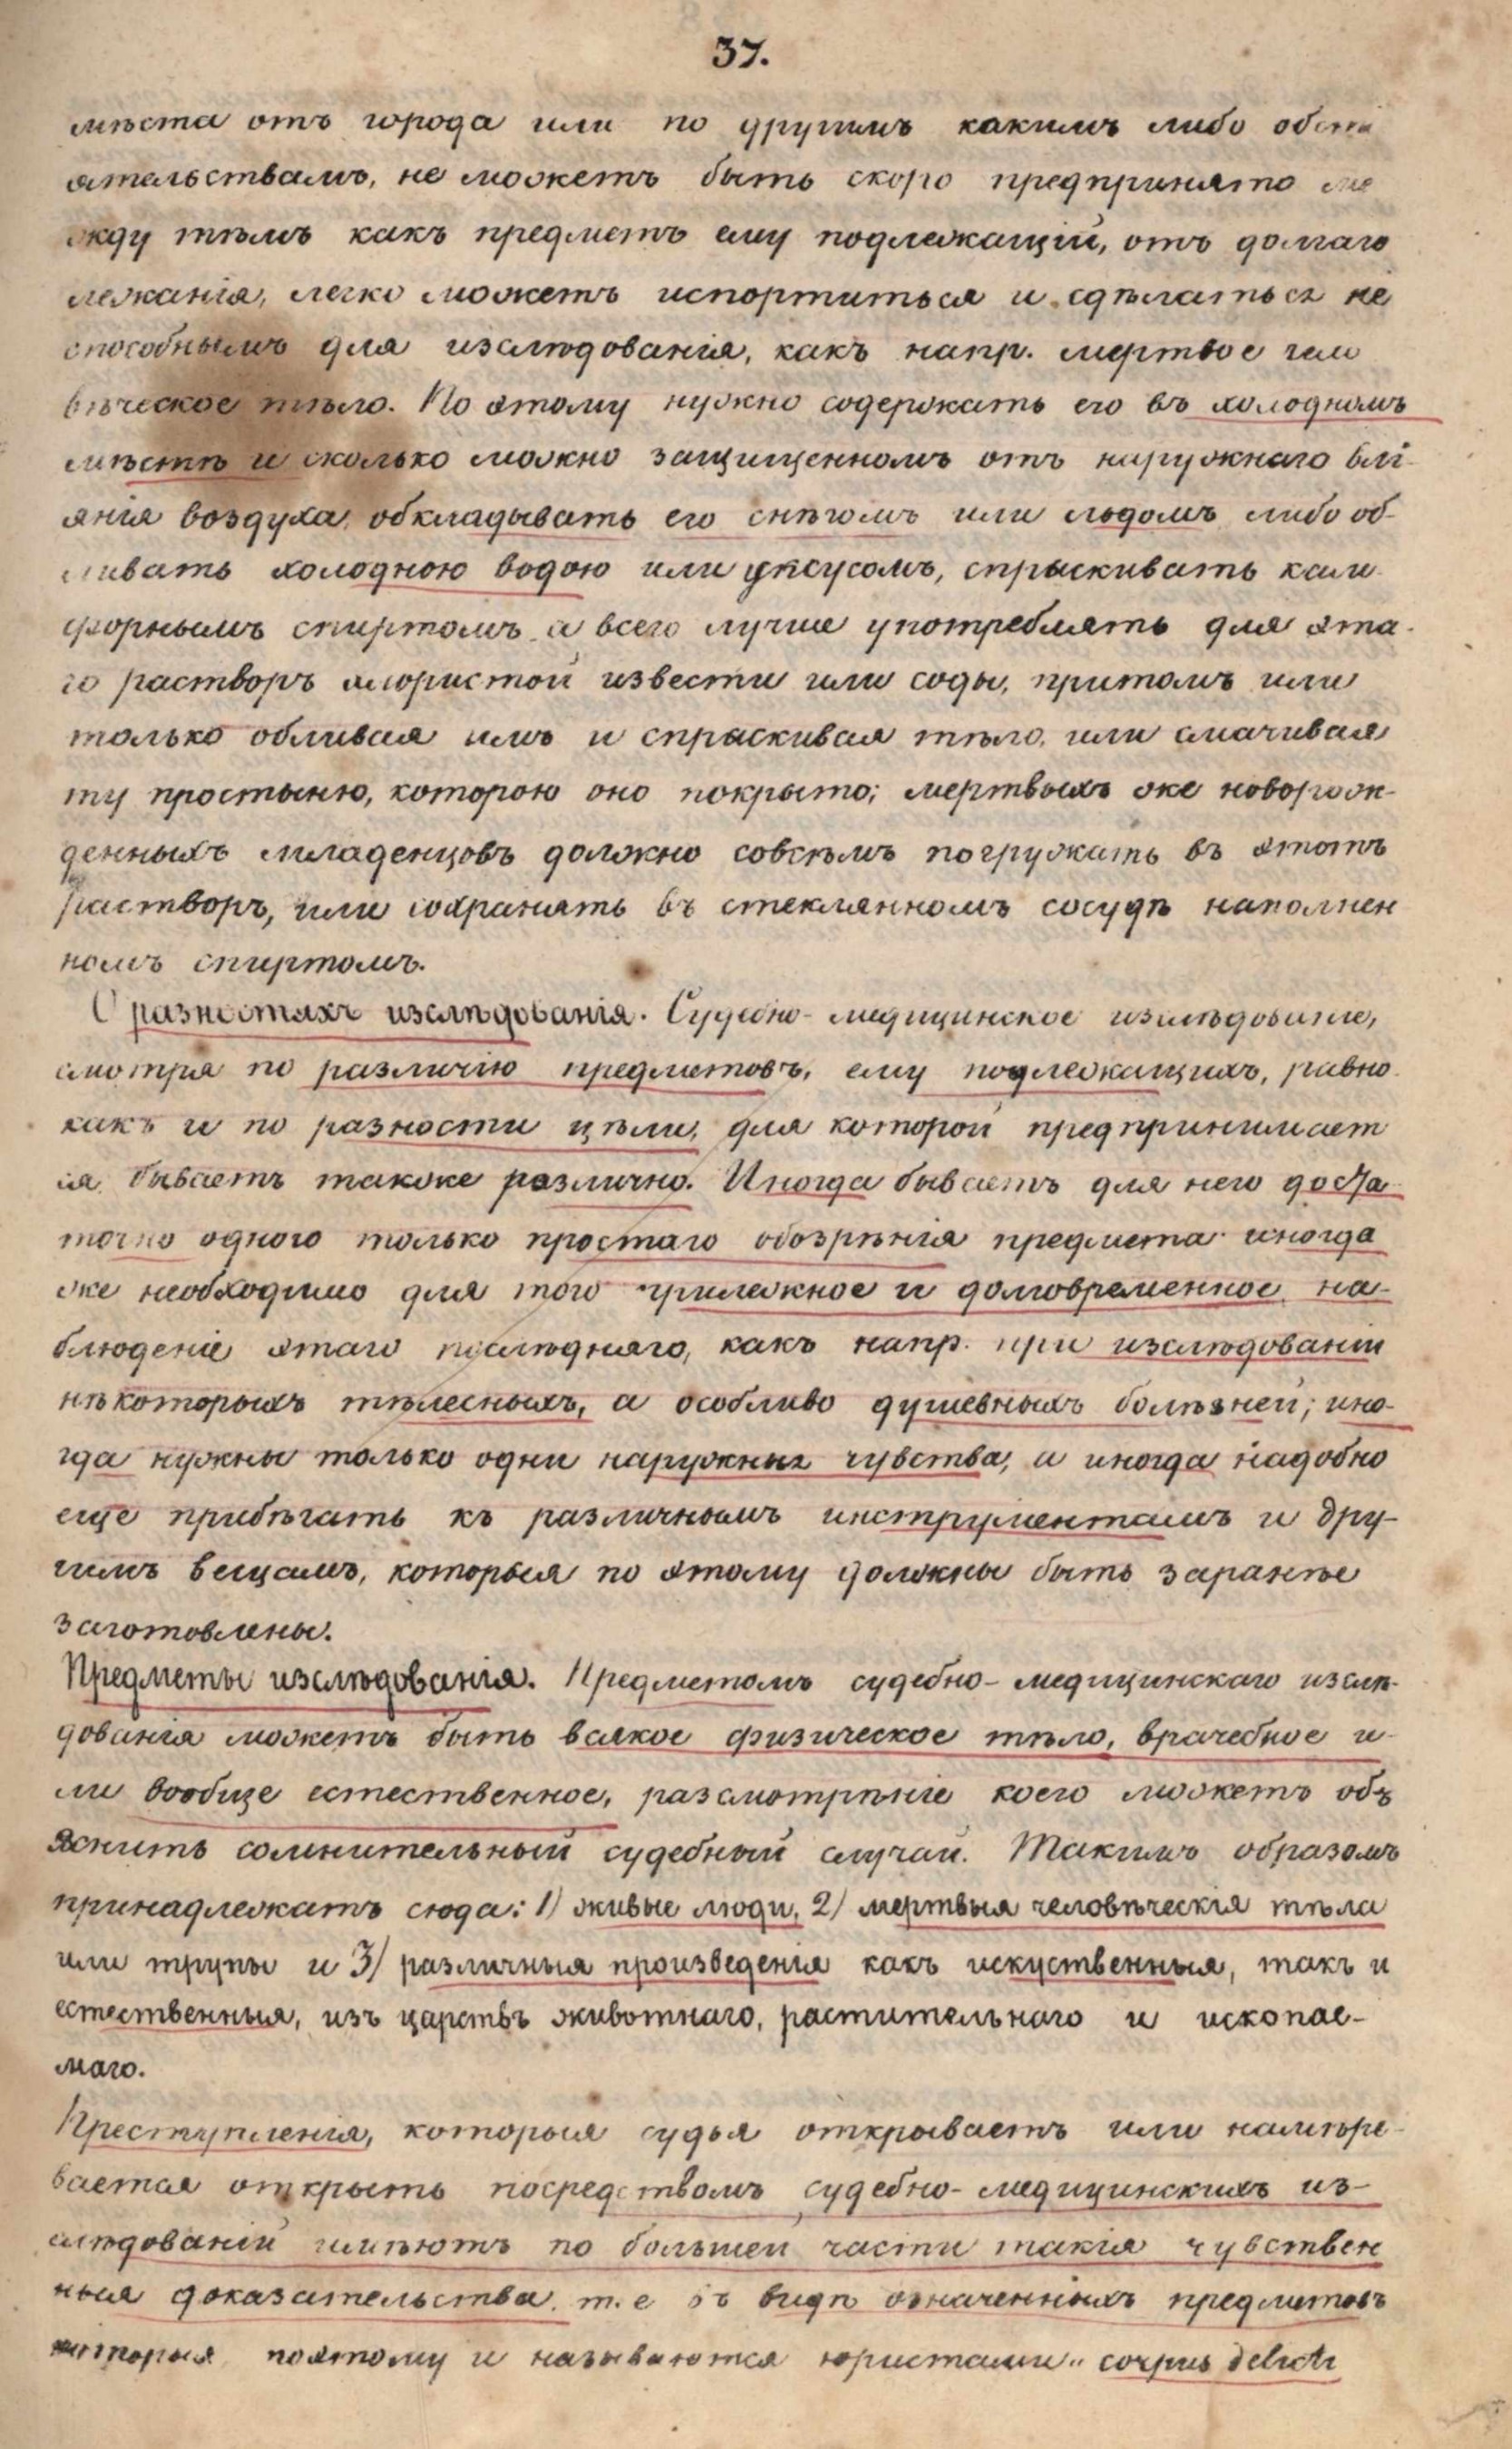 37.
мѣста отъ города или по другимъ какимъ либо обсто
ятельствамъ, не можетъ быть скоро предпринято ме
жду тѣмъ какъ предметъ ему подлежащій, отъ долгаго
лежанія, легко можетъ испортиться и сдѣлаться не
способнымъ для изслѣдованія, какъ напр. мертвое чело
вѣческое тѣло. По этому нужно содержать его въ холодномъ
мѣстѣ и сколько можно защищенномъ отъ наружнаго влі-
янія воздуха, обкладывать его снѣгомъ или льдомъ либо об-
ливать холодною водою или уксусомъ, спрыскивать кам-
форнымъ спиртомъ а всего лучше употреблять для эта-
го растворъ хлористой извести или соды, притомъ или
только обливая имъ и спрыскивая тѣло, или смачивая
ту простыню, которою оно покрыто; мертвыхъ же новорож-
денныхъ младенцовъ должно совсѣмъ погружать въ этотъ
растворъ, или сохранять въ стеклянномъ сосудѣ наполнен
номъ спиртомъ.
О разностяхъ изслѣдованія. Судебно-медицинское изслѣдованіе,
смотря по различію предметовъ, ему подлежащихъ, равно
какъ и по разности цѣли, для которой предпринимает
ся, бываетъ также различно. Иногда бываетъ для него доста
точно одного только простаго обозрѣнія предмета иногда
же необходимо для того прилежное и долговременное на-
блюденіе этаго послѣдняго, какъ напр. при изслѣдованіи
нѣкоторыхъ тѣлесныхъ, а особливо душевныхъ болѣзней; ино-
гда нужны только одни наружныя чувства, и иногда надобно
еще прибѣгать къ различнымъ инструментамъ и дру-
гимъ вещамъ, которыя по этому должны быть заранѣе
заготовлены.
Предметы изслѣдованія. Предметомъ судебно-медицинскаго изслѣ-
дованія можетъ быть всякое физическое тѣло, врачебное и-
ли вообще естественное, разсмотрѣніе коего можетъ объ
яснить сомнительный судебный случай. Такимъ образомъ
принадлежатъ сюда: 1) живые люди, 2) мертвыя человѣческія тѣла
или трупы и 3) различныя произведенія какъ искуственныя, такъ и
естественныя, изъ царствъ животнаго, растительнаго и ископае-
маго.
Преступленія, которыя судья открываетъ или намѣре-
вается открыть посредствомъ судебно-медицинскихъ из-
слѣдованій имѣютъ по большей части такія чувствен
ныя доказательства, т. е въ видѣ означенныхъ предметовъ
которыя поэтому и называются юристами „corpus delicti